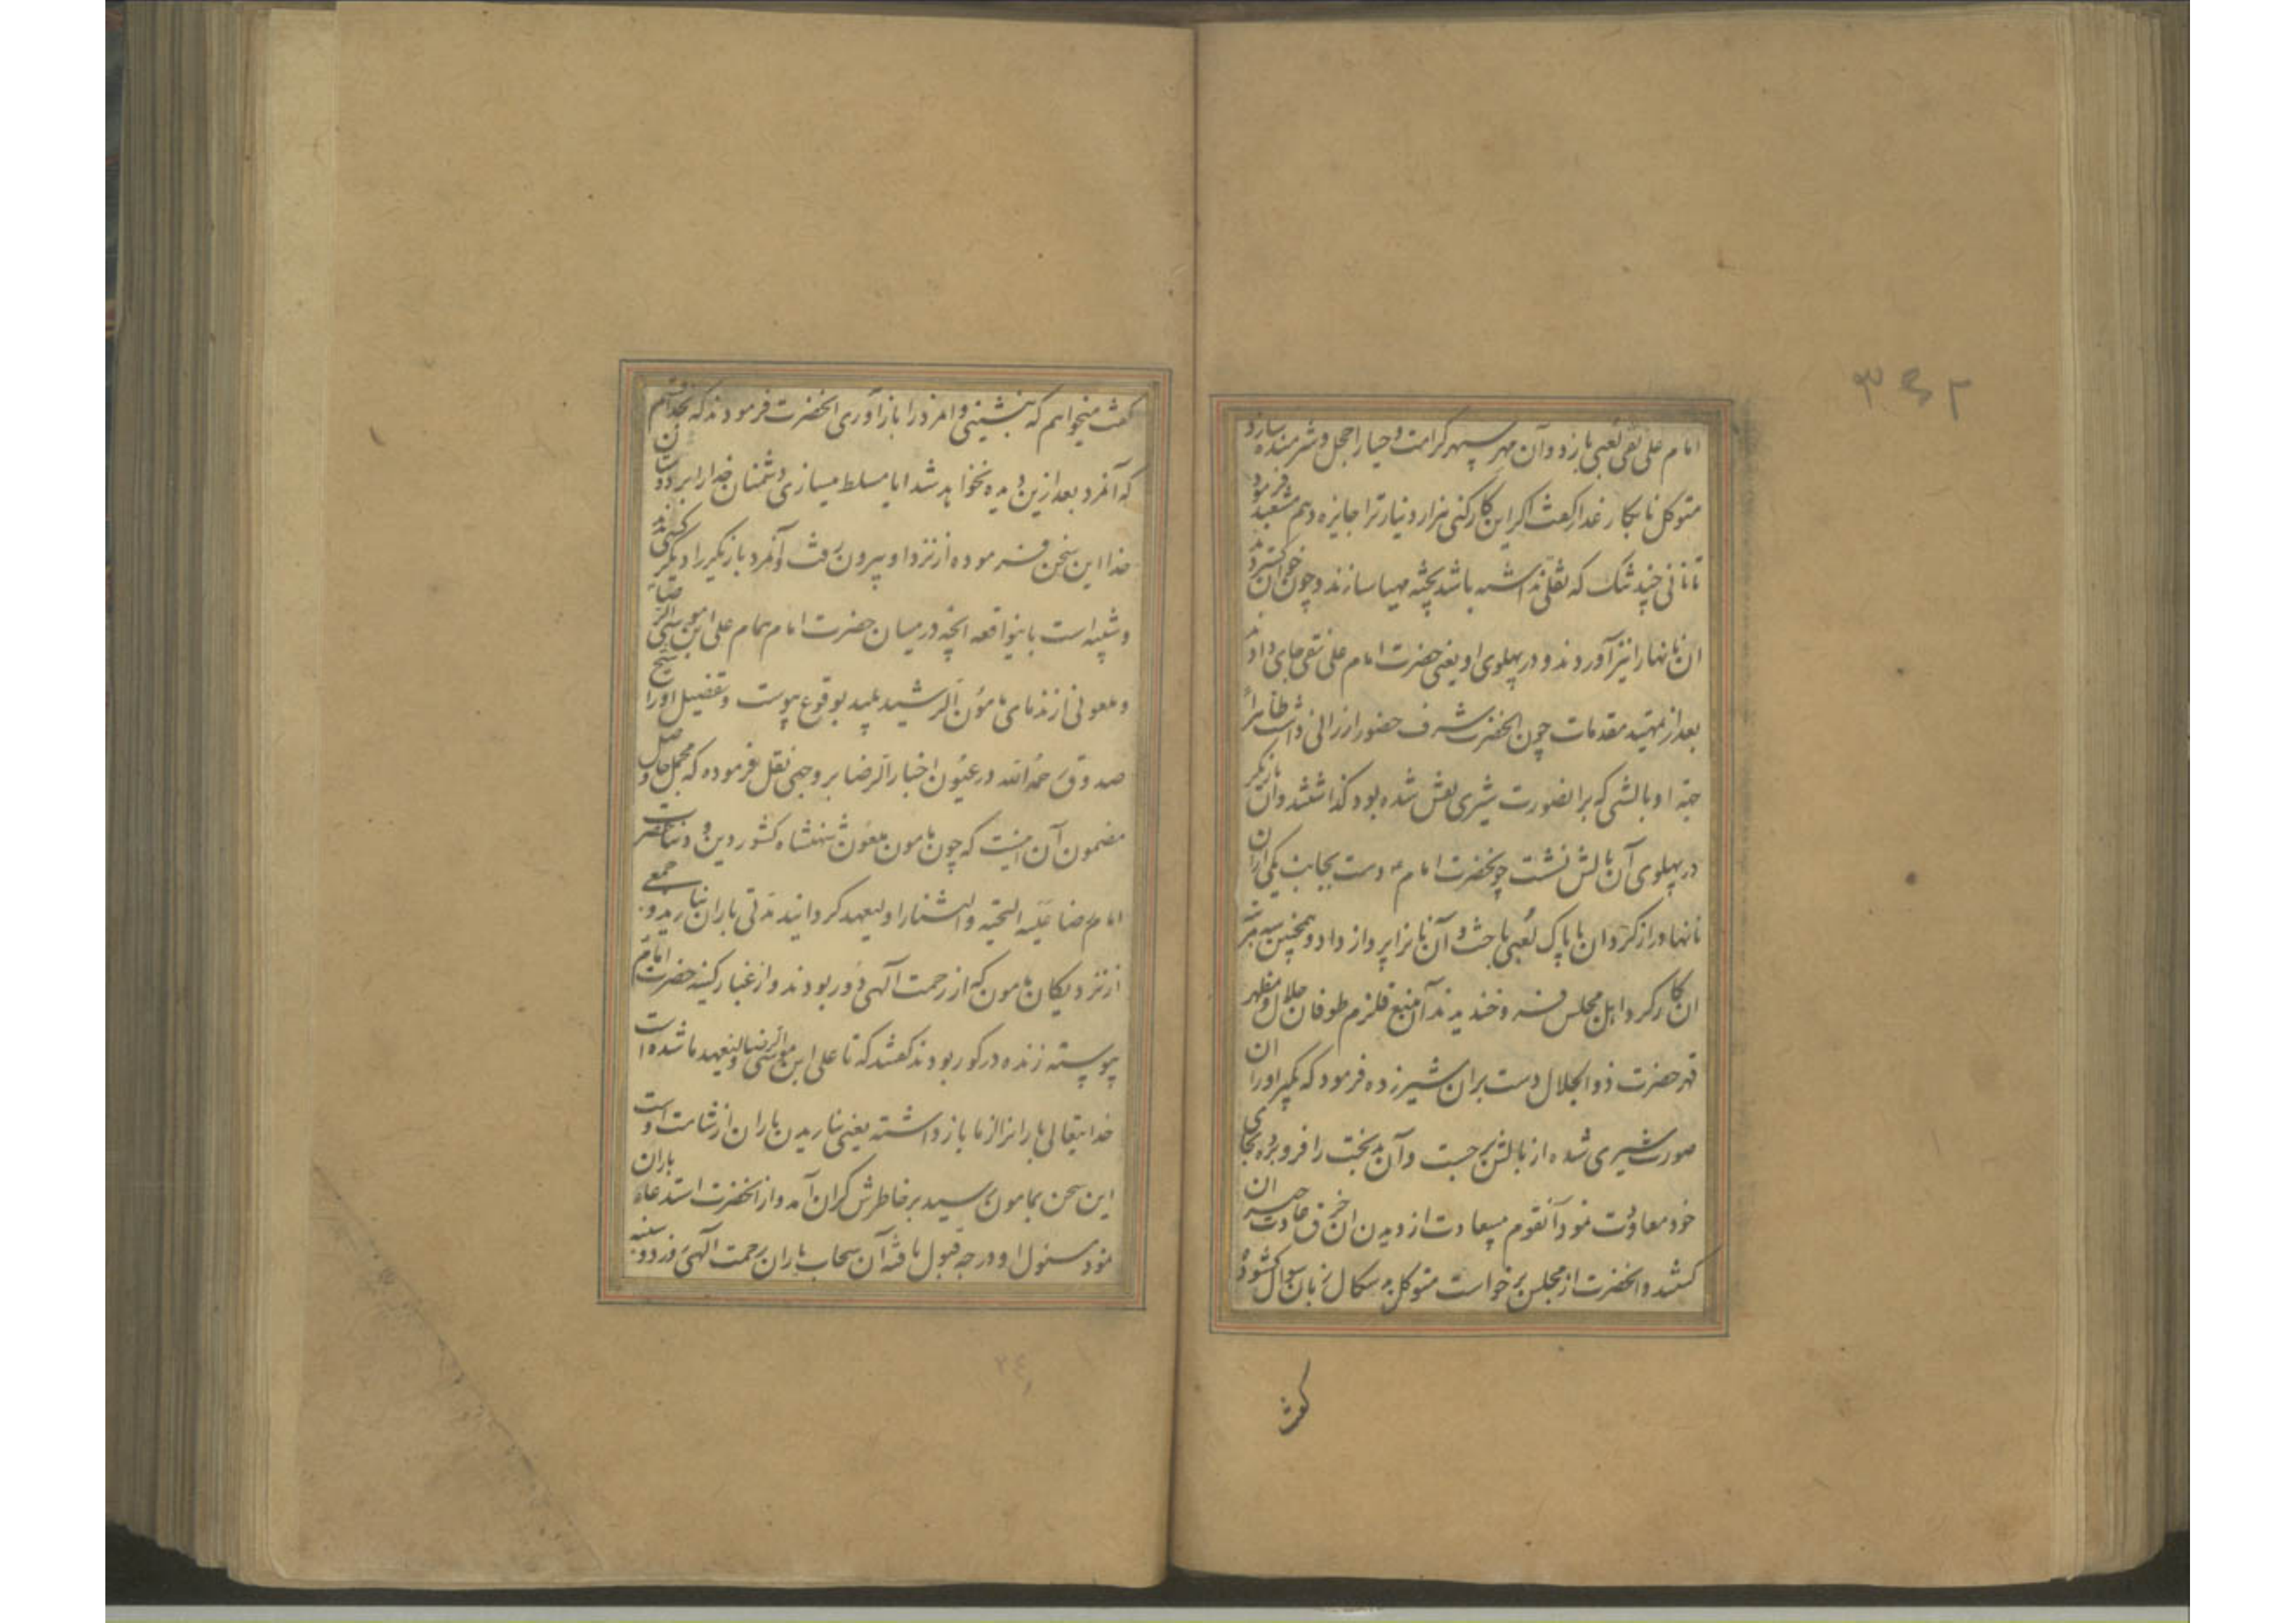 امام علی نقی لعبی بازد و آن مهر سپهر کرامت و حیا را خجل و شرمنده سازد
متوکل نابکار غدار گفت اگر این کار کنی هزار دینار ترا جایزه دهم مشعبد فرمود
تا نانی چند تنک که ثقلی نداشته باشد پخته مهیا سازند و چون خوان گستردند
ان نانها را نیز آوردند و در پهلوی او یعنی حضرت امام علی نقی جای دادند
بعد از تمهید مقدمات چون انحضرت شرف حضور ارزانی داشت ظاهراً
جهة او بالشی که بر انصورت شیری نقش شده بود گذاشتند وان بازیگر
در پهلوی آن بالش نشست چونحضرت امام ع دست بجانب یکی ازان
نانها دراز کرد وان ناپاک لعبی باخت و آن نانرا پرواز داد و همچنین سه مرتبه
ان کار کرد و اهل مجلس خندیدند آن منبع قلزم طوفان جلال و مظهر
قهر حضرت ذوالجلال دست بران شیر زده فرمود که بگیر اورا ان
صورت شیری شده از بالش برجست وآن بدبخت را فرو برده بجای
خود معاودت نمود آنقوم بیسعادت از دیدن ان خرق عادت حیران
گشتند و انحضرت از مجلس برخواست متوکل زبان سوال گشوده
گفت
گفت میخواهم که بنشینی و امرد را باز آوری انحضرت فرمودند که بخدا قسم
که آنمرد بعد ازین دیده نخواهد شد ایا مسلط میسازی دشمنان خدا را بر دوستان
خدا این سخن فرموده از نزد او بیرون رفت و آنمرد بازیگر را دیگر کسی ندید
و شبیه است باینواقعه انچه در میان حضرت امام همام علی ابن موسی الرضا
و ملعونی از ندمای مأمون الرشید پلید بوقوع پیوست و تفضیل اورا شیخ
صدوق رحمه الله در عیون اخبار الرضا بر وجهی نقل فرموده که مجمل و حاصل
مضمون آن اینست که چون مامون ملعون شهنشاه کشور دین و دنیا حضرت
امام رضا علیه التحیة والثنا را ولیعهد گردانید مدتی باران نبارید و جمعی
از نزدیکان مامون که از رحمت الهی دور بودند و از غبار کینه حضرت امام
پیوسته زنده در گور بودند گفتند که تا علی ابن موسی الرضا ولیعهد ما شده است
خدایتعالی بارانرا از ما باز داشته یعنی نباریدن باران از شامت اوست
این سخن بمامون رسید بر خاطرش گران آمد و از انحضرت استدعاء باران
نمود مسئول او درجه قبول یافته آن سحاب باران رحمت الهی